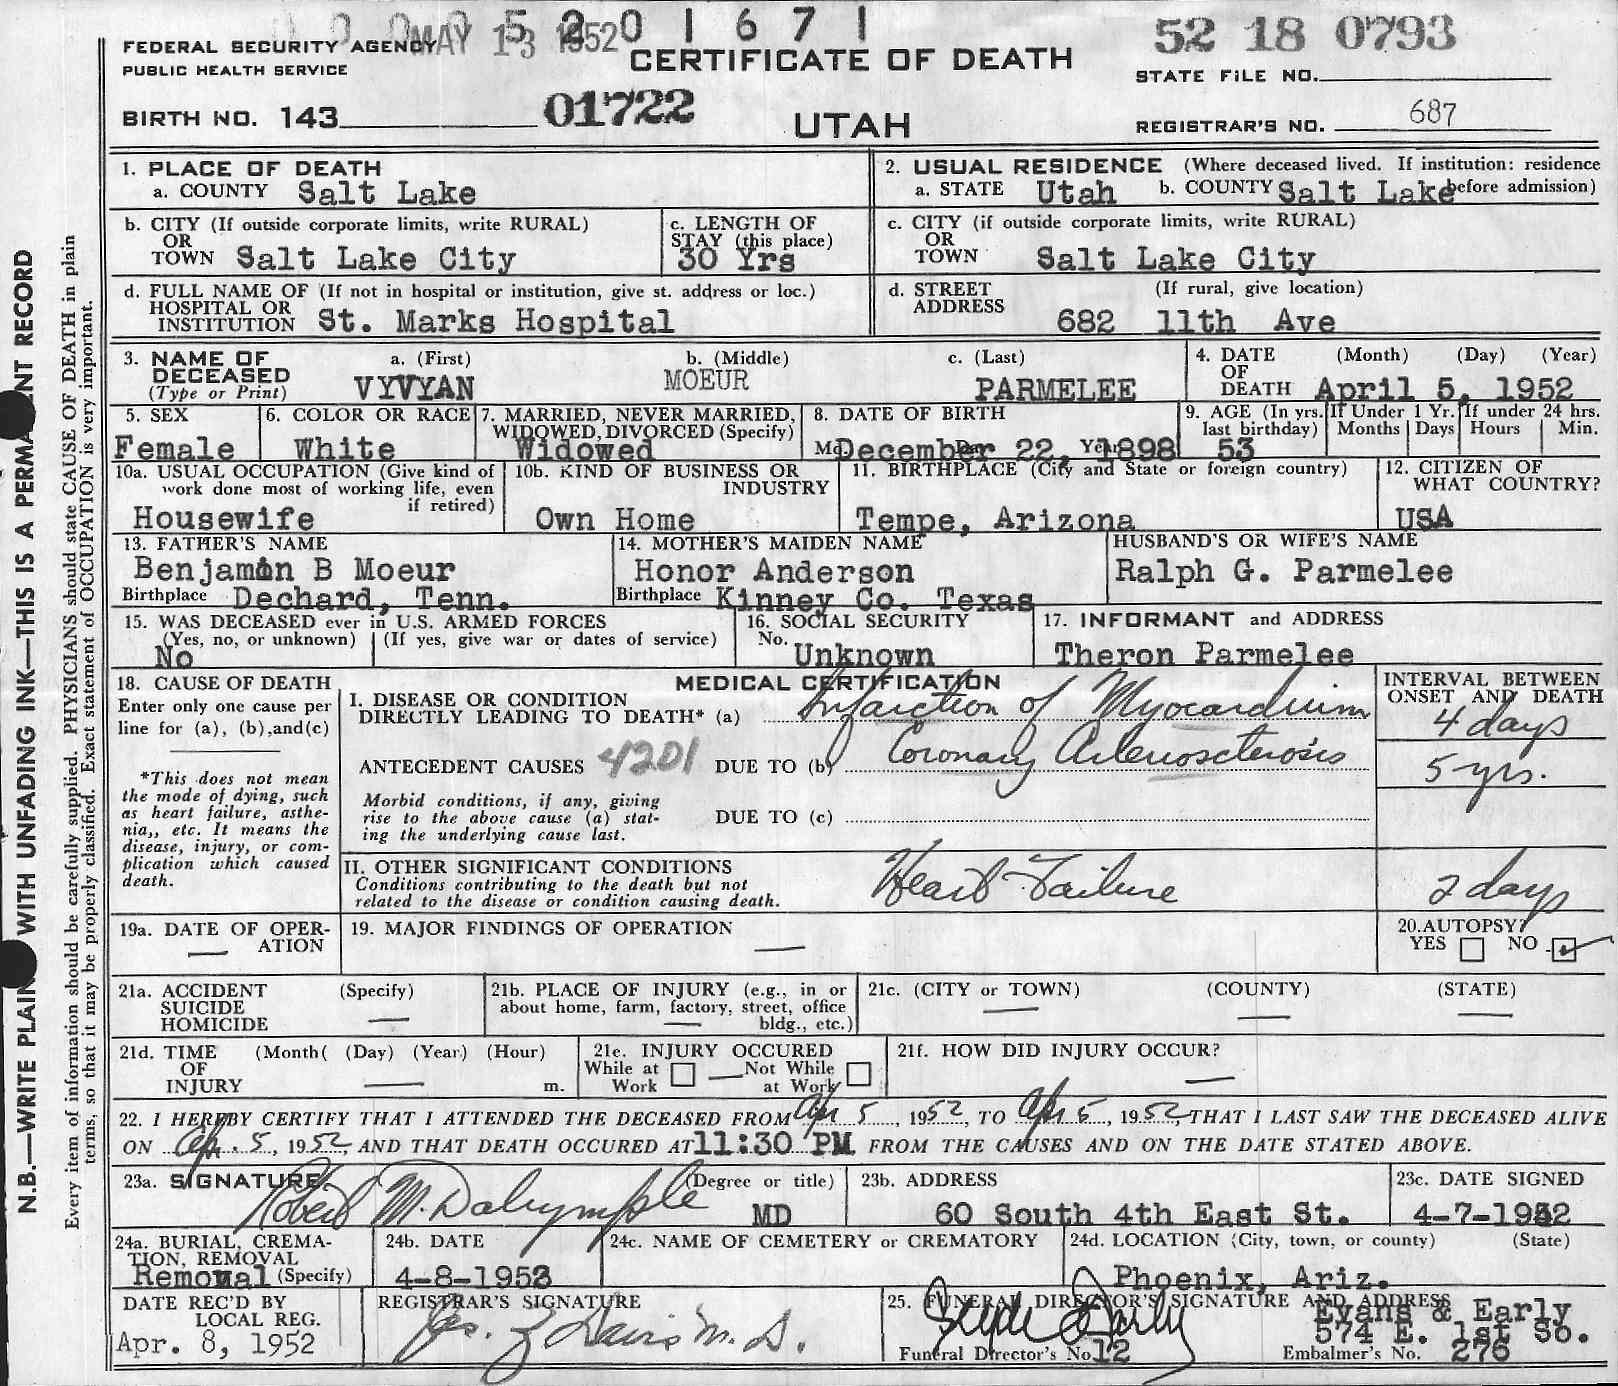 5201671
MAY 13 1952
52 18 0793
FEDERAL SECURITY AGENCY
PUBLIC HEALTH SERVICE
CERTIFICATE OF DEATH
STATE FILE NO.
BIRTH NO. 143
01722
UTAH
REGISTRAR'S NO. 687
1. PLACE OF DEATH
a. COUNTY Salt Lake
2. USUAL RESIDENCE (Where deceased lived. If institution: residence before admission)
a. STATE Utah b. COUNTY Salt Lake
b. CITY (If outside corporate limits, write RURAL)
OR
TOWN Salt Lake City
c. LENGTH OF
STAY (this place)
30 Yrs
c. CITY (if outside corporate limits, write RURAL)
OR
TOWN Salt Lake City
d. FULL NAME OF (If not in hospital or institution, give st. address or loc.)
HOSPITAL OR
INSTITUTION St. Marks Hospital
d. STREET (If rural, give location)
ADDRESS
682 11th Ave
3. NAME OF
DECEASED
(Type or Print)
a. (First)
VYVYAN
b. (Middle)
MOEUR
c. (Last)
PARMELEE
4. DATE (Month) (Day) (Year)
OF
DEATH April 5, 1952
5. SEX
Female
6. COLOR OR RACE
White
7. MARRIED, NEVER MARRIED,
WIDOWED, DIVORCED (Specify)
Widowed
8. DATE OF BIRTH
December 22, 1898
9. AGE (In yrs. last birthday)
53
If Under 1 Yr.
Months Days
If under 24 hrs.
Hours Min.
10a. USUAL OCCUPATION (Give kind of
work done most of working life, even
if retired)
Housewife
10b. KIND OF BUSINESS OR
INDUSTRY
Own Home
11. BIRTHPLACE (City and State or foreign country)
Tempe, Arizona
12. CITIZEN OF
WHAT COUNTRY?
USA
13. FATHER'S NAME
Benjamin B Moeur
Birthplace Dechard, Tenn.
14. MOTHER'S MAIDEN NAME
Honor Anderson
Birthplace Kinney Co. Texas
HUSBAND'S OR WIFE'S NAME
Ralph G. Parmelee
15. WAS DECEASED ever in U.S. ARMED FORCES
(Yes, no, or unknown) (If yes, give war or dates of service)
No
16. SOCIAL SECURITY
No. Unknown
17. INFORMANT and ADDRESS
Theron Parmelee
18. CAUSE OF DEATH
Enter only one cause per
line for (a), (b), and (c)
*This does not mean
the mode of dying, such
as heart failure, asthe-
nia,, etc. It means the
disease, injury, or com-
plication which caused
death.
MEDICAL CERTIFICATION
I. DISEASE OR CONDITION
DIRECTLY LEADING TO DEATH* (a) Infarction of Myocardium
ANTECEDENT CAUSES 4201 DUE TO (b) Coronary Arteriosclerosis
Morbid conditions, if any, giving
rise to the above cause (a) stat-
ing the underlying cause last.
DUE TO (c)
II. OTHER SIGNIFICANT CONDITIONS
Conditions contributing to the death but not
related to the disease or condition causing death.
Heart Failure
INTERVAL BETWEEN
ONSET AND DEATH
4 days
5 yrs.
2 days
19a. DATE OF OPER-
ATION
—
19. MAJOR FINDINGS OF OPERATION
—
20. AUTOPSY?
YES NO
21a. ACCIDENT (Specify)
SUICIDE
HOMICIDE —
21b. PLACE OF INJURY (e.g., in or
about home, farm, factory, street, office
bldg., etc.)
—
21c. (CITY or TOWN) (COUNTY) (STATE)
— — —
21d. TIME (Month( (Day) (Year) (Hour)
OF
INJURY — m.
21e. INJURY OCCURED
While at Work — Not While at Work
21f. HOW DID INJURY OCCUR?
—
22. I HEREBY CERTIFY THAT I ATTENDED THE DECEASED FROM Apr 5, 1952, TO Apr 5, 1952, THAT I LAST SAW THE DECEASED ALIVE
ON Apr. 5, 1952, AND THAT DEATH OCCURED AT 11:30 PM FROM THE CAUSES AND ON THE DATE STATED ABOVE.
23a. SIGNATURE (Degree or title)
Robert M. Dalrymple MD
23b. ADDRESS
60 South 4th East St.
23c. DATE SIGNED
4-7-1952
24a. BURIAL, CREMA-
TION, REMOVAL
Removal (Specify)
24b. DATE
4-8-1952
24c. NAME OF CEMETERY or CREMATORY
24d. LOCATION (City, town, or county) (State)
Phoenix, Ariz.
DATE REC'D BY
LOCAL REG.
Apr. 8, 1952
REGISTRAR'S SIGNATURE
Davis M.D.
25. FUNERAL DIRECTOR'S SIGNATURE AND ADDRESS
Clyde Early
Evans & Early
574 E. 1st So.
Funeral Director's No 12
Embalmer's No. 276
N.B.—WRITE PLAIN WITH UNFADING INK—THIS IS A PERMANENT RECORD
Every item of information should be carefully supplied. PHYSICIANS should state CAUSE OF DEATH in plain
terms, so that it may be properly classified. Exact statement of OCCUPATION is very important.